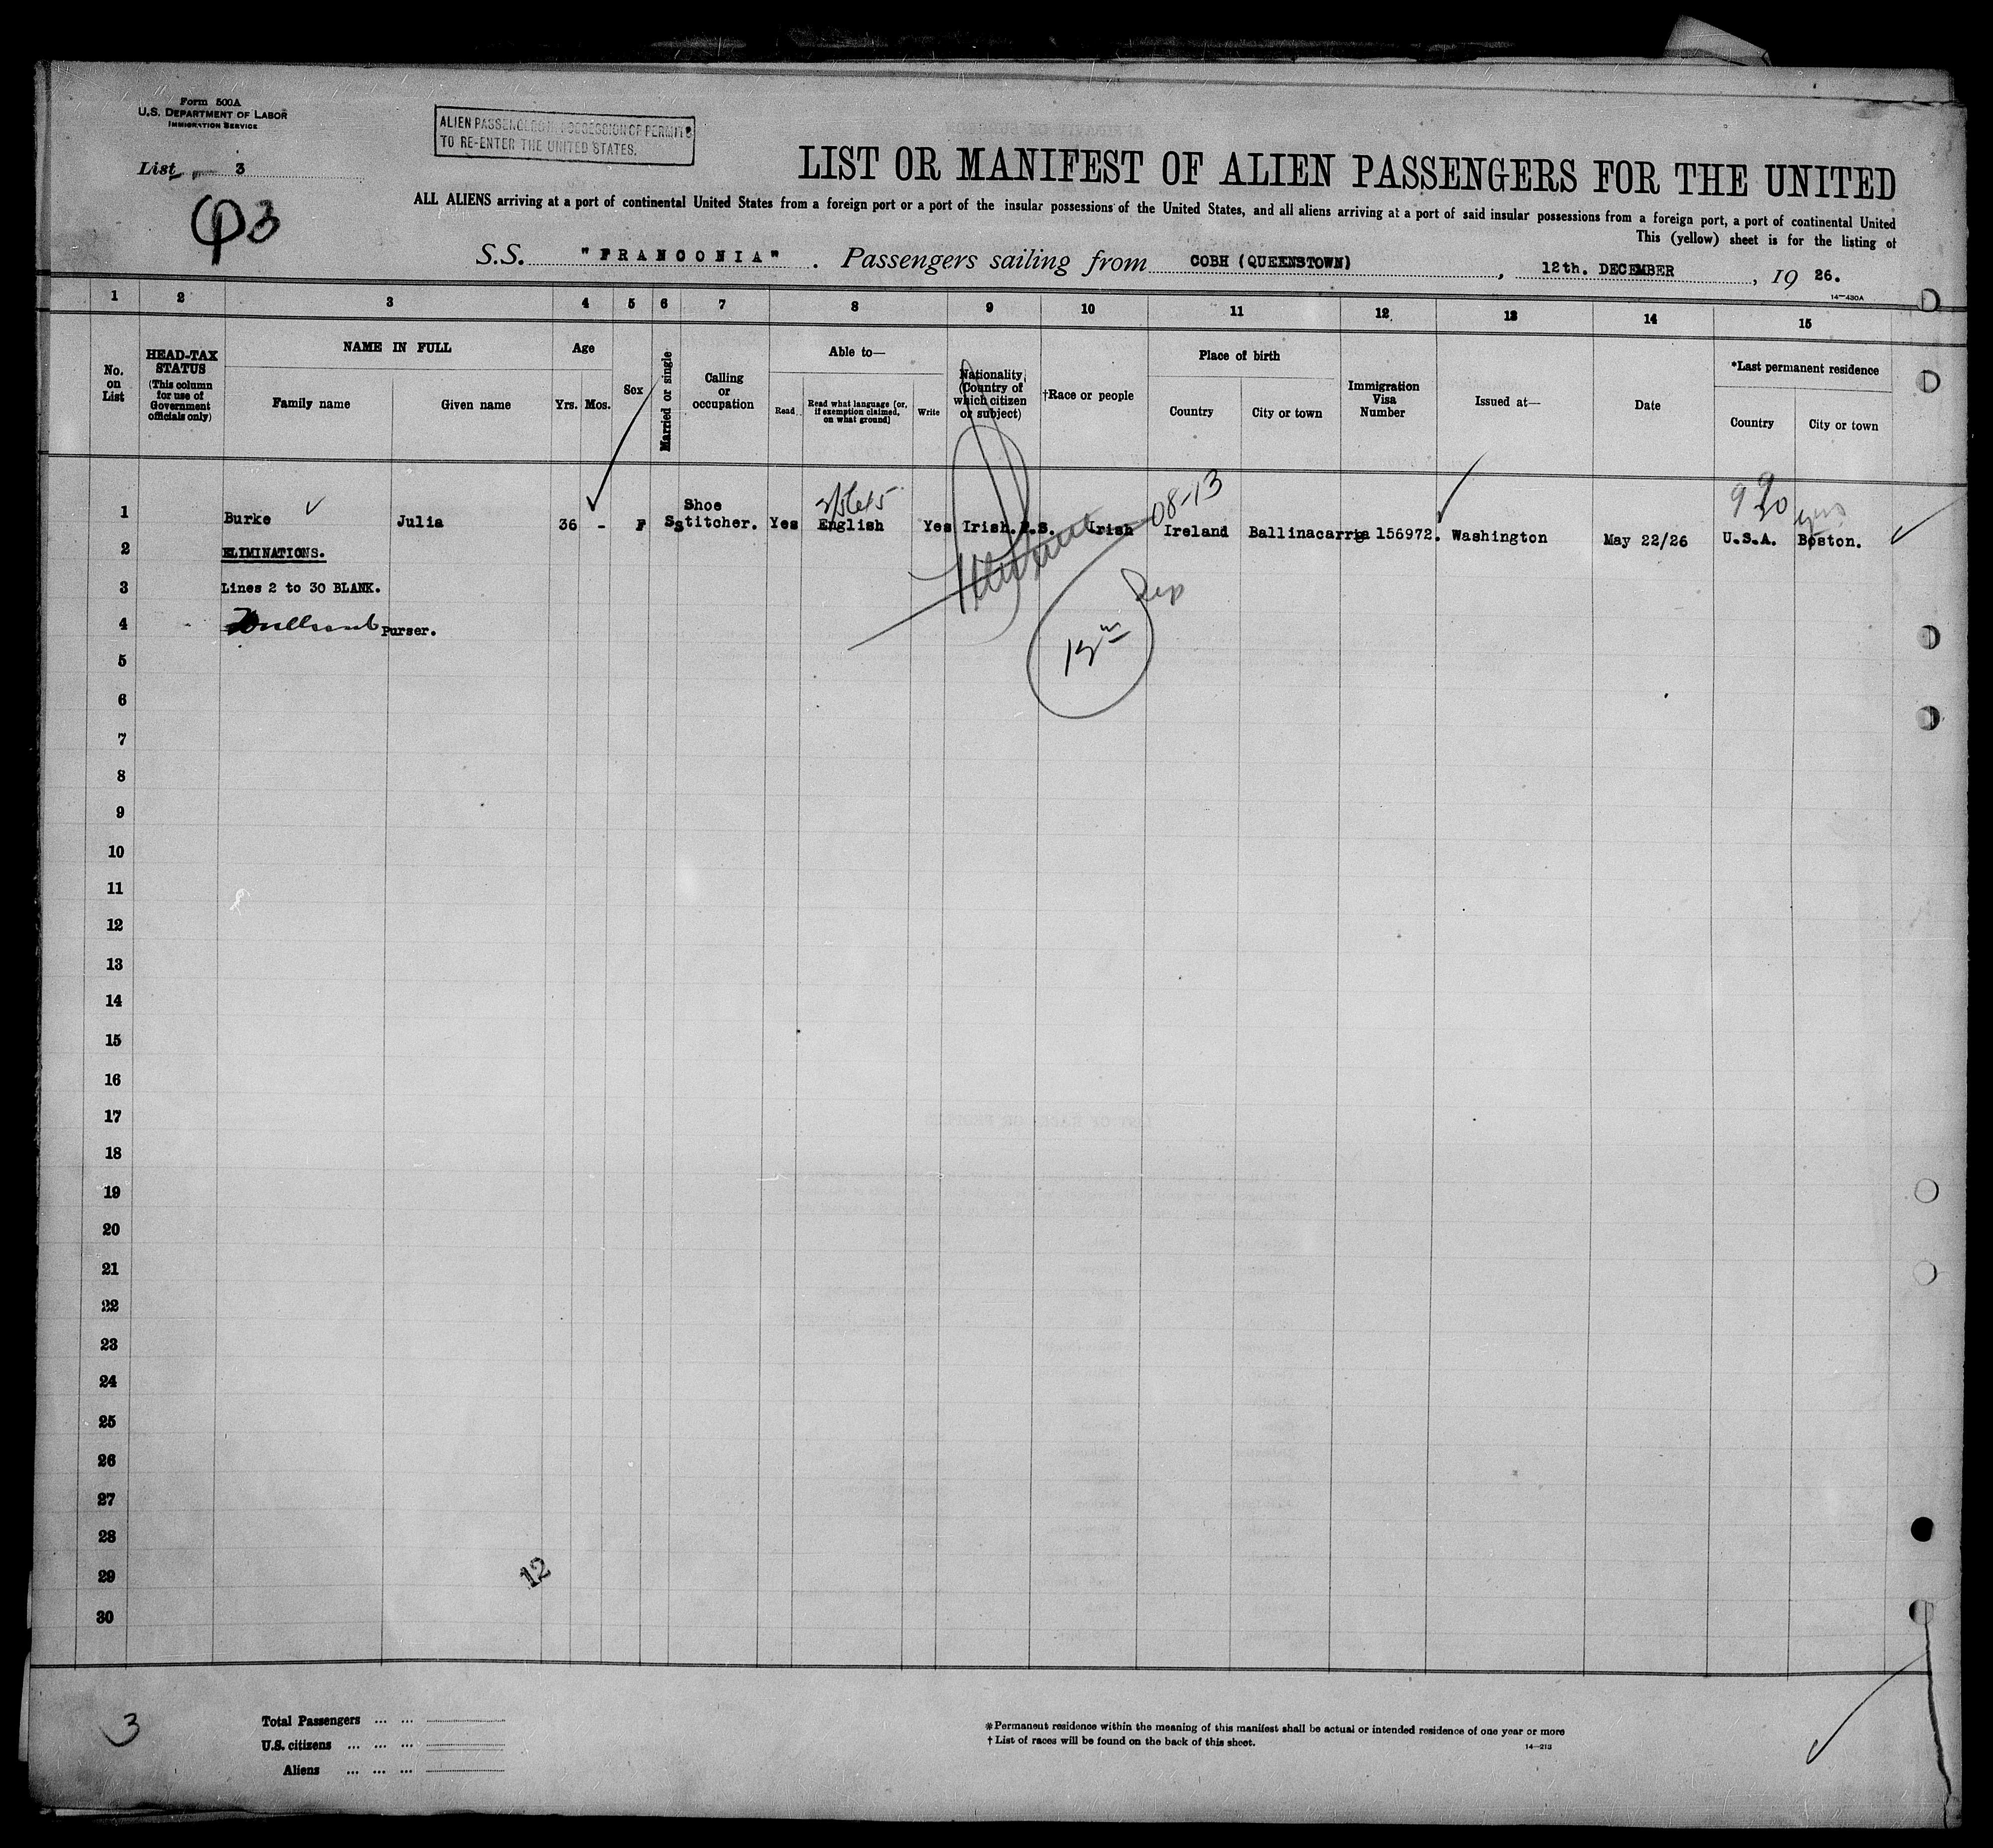 Form 500A
U.S. DEPARTMENT OF LABOR
IMMIGRATION SERVICE
ALIEN PASSENGERS IN POSSESSION OF PERMITS
TO RE-ENTER THE UNITED STATES.
List 3
3
LIST OR MANIFEST OF ALIEN PASSENGERS FOR THE UNITED
ALL ALIENS arriving at a port of continental United States from a foreign port or a port of the insular possessions of the United States, and all aliens arriving at a port of said insular possessions from a foreign port, a port of continental United
This (yellow) sheet is for the listing of
S.S. "FRANCONIA". Passengers sailing from COBH (QUEENSTOWN), 12th. DECEMBER, 19 26.
14—430A
1 2 3 4 5 6 7 8 9 10 11 12 13 14 15
No. on List
HEAD-TAX STATUS (This column for use of Government officials only)
NAME IN FULL
Family name Given name
Age
Yrs. Mos.
Sex
Married or single
Calling or occupation
Able to—
Read Read what language [or, if exemption claimed, on what ground] Write
Nationality (Country of which citizen or subject)
†Race or people
Place of birth
Country City or town
Immigration Visa Number
Issued at—
Date
*Last permanent residence
Country City or town
08-13
1 Burke Julia 36 - F S Shoe Stitcher. Yes English Yes Irish.F.S. Irish Ireland Ballinacarrig 156972. Washington May 22/26 U.S.A. Boston.
2 ELIMINATIONS.
3 Lines 2 to 30 BLANK.
4 Purser.
5
6
7
8
9
10
11
12
13
14
15
16
17
18
19
20
21
22
23
24
25
26
27
28
29
30
12
3
Total Passengers ... ...
U.S. citizens ... ... ...
Aliens ... ... ...
*Permanent residence within the meaning of this manifest shall be actual or intended residence of one year or more
† List of races will be found on the back of this sheet.
14—213